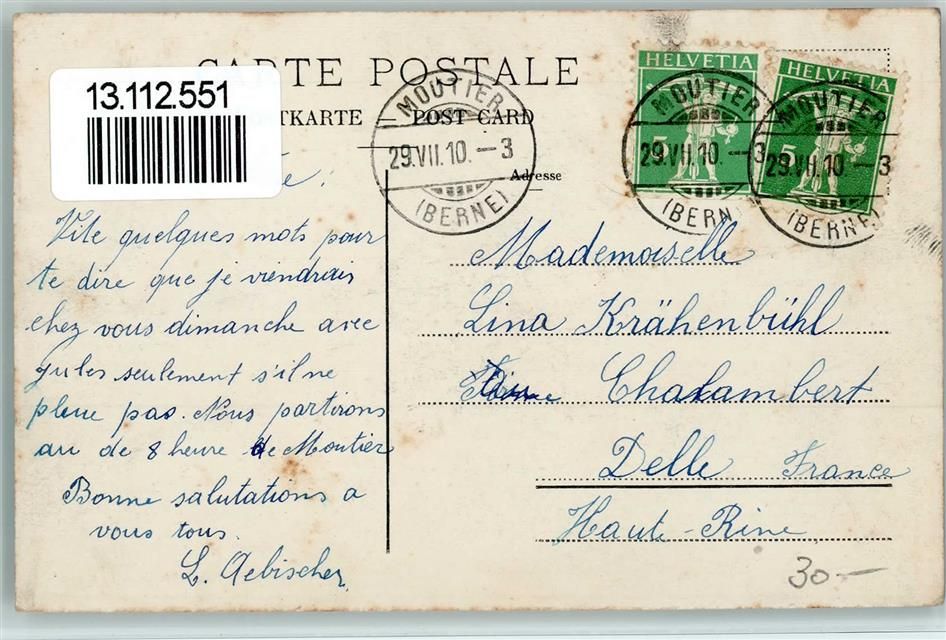 CARTE POSTALE
13.112.551
TKARTE — POST CARD
Adresse
MOUTIER
29.VII.10.–3
(BERNE)
HELVETIA
5
MOUTIER
29.VII.10.–3
(BERN
HELVETIA
5
MOUTIER
29.VII.10.–3
(BERNE)
Vite quelques mots pour
te dire que je viendrais
chez vous dimanche avec
Jules seulement s'il ne
pleue pas. Nous partirons
au de 8 heure de Moutier
Bonne salutations a
vous tous.
L. Aebischer
Mademoiselle
Lina Krähenbühl
Chalambert
Delle France
Haute-Rine
30.—